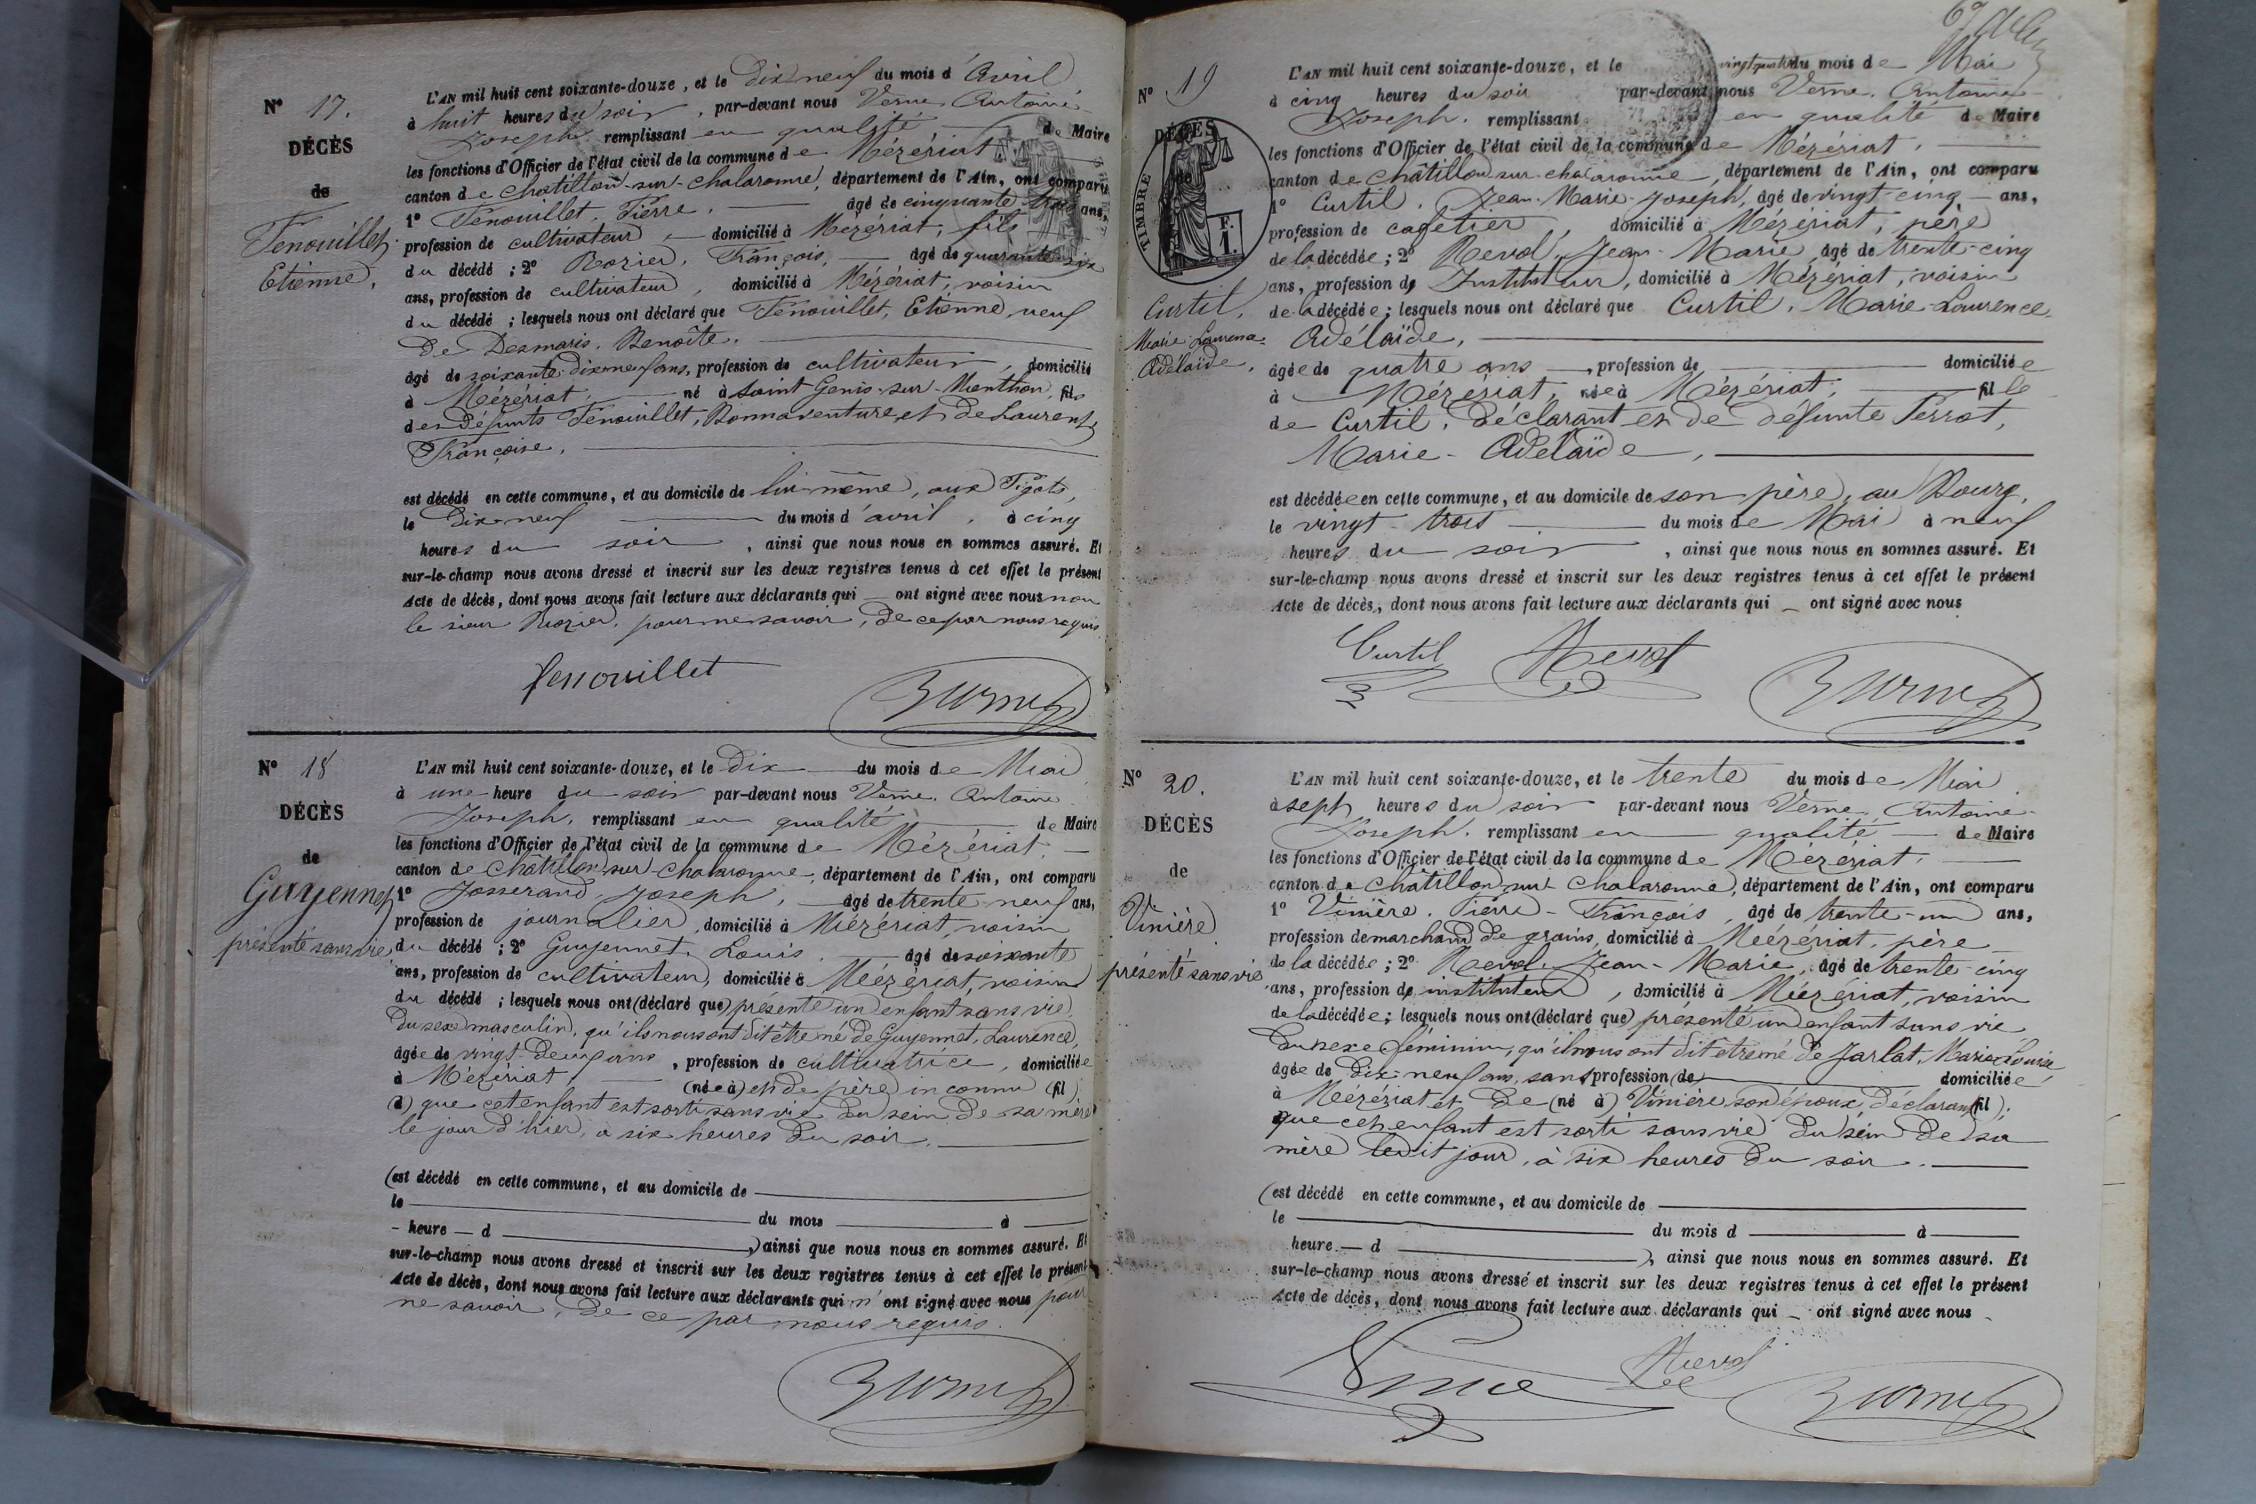 N° 17.
DÉCÈS
de
Fenouillet
Etienne.
L'AN mil huit cent soixante-douze, et le Dix neuf du mois d'Avril
à huit heures du soir, par-devant nous Verne Antoine
Joseph remplissant en qualité de Maire
les fonctions d'Officier de l'état civil de la commune de Mézériat
canton de Châtillon-sur-Chalaronne, département de l'Ain, ont comparu
1° Fenouillet, Pierre, âgé de cinquante trois ans,
profession de cultivateur, domicilié à Mézériat, fils
du décédé ; 2° Rozier, François, âgé de quarante six
ans, profession de cultivateur, domicilié à Mézériat, voisin
du décédé ; lesquels nous ont déclaré que Fenouillet, Etienne, veuf
de Desmaris, Benoîte.
âgé de soixante-dix-neuf ans, profession de cultivateur, domicilié
à Mézériat, né à Saint Genis-sur-Menthon, fils
des défunts Fenouillet, Bonnaventure, et de Laurent,
Françoise,
est décédé en cette commune, et au domicile de lui-même, aux Pigots,
le Dix-neuf du mois d'avril, à cinq
heures du soir, ainsi que nous nous en sommes assuré. Et
sur-le-champ nous avons dressé et inscrit sur les deux registres tenus à cet effet le présent
Acte de décès, dont nous avons fait lecture aux déclarants qui ont signé avec nous non
le sieur Rozier, pour ne savoir, de ce par nous requis.
Fenouillet
N° 18
DÉCÈS
de
Guyennet
présenté sans vie
L'AN mil huit cent soixante-douze, et le Dix du mois de Mai
à une heure du soir par-devant nous Verne, Antoine
Joseph, remplissant en qualité de Maire
les fonctions d'Officier de l'état civil de la commune de Mézériat,
canton de Châtillon sur Chalaronne, département de l'Ain, ont comparu
1° Josserand Joseph, âgé de trente neuf ans,
profession de journalier, domicilié à Mézériat, voisin
du décédé ; 2° Guyennet, Louis, âgé de soixante
ans, profession de cultivateur, domicilié à Mézériat, voisin
du décédé ; lesquels nous ont (déclaré que) présenté un enfant sans vie,
du sexe masculin, qu'ils nous ont dit être né de Guyennet, Laurence,
âgée de vingt-deux ans, profession de cultivatrice, domiciliée
à Mézériat, (née à) et de père inconnu (fil)
(d) que cet enfant est sorti sans vie du sein de sa mère
le jour d'hier, à six heures du soir.
(est décédé en cette commune, et au domicile de
le du mois à
heure d ,) ainsi que nous nous en sommes assuré. Et
sur-le-champ nous avons dressé et inscrit sur les deux registres tenus à cet effet le présent
Acte de décès, dont nous avons fait lecture aux déclarants qui n'ont signé avec nous pour
ne savoir, de ce par nous requis.
N° 19
DÉCÈS
de
TIMBRE
F.
1.
Curtil,
Marie-Laurence-
Adélaïde,
L'AN mil huit cent soixante-douze, et le vingt quatre du mois de Mai
à cinq heures du soir par-devant nous Verne, Antoine-
Joseph, remplissant en qualité de Maire
les fonctions d'Officier de l'état civil de la commune de Mézériat,
canton de Châtillon sur Chalaronne, département de l'Ain, ont comparu
1° Curtil, Jean-Marie-Joseph, âgé de vingt-cinq ans,
profession de cafetier, domicilié à Mézériat, père
de la décédée ; 2° Revol, Jean-Marie, âgé de trente-cinq
ans, profession de Instituteur, domicilié à Mézériat, voisin
de la décédée ; lesquels nous ont déclaré que Curtil, Marie-Laurence,
Adélaïde,
âgée de quatre ans, profession de domiciliée
à Mézériat, née à Mézériat, fille
de Curtil, déclarant et de défunte Perrat,
Marie-Adélaïde,
est décédée en cette commune, et au domicile de son père, au Bourg,
le vingt-trois du mois de Mai à neuf
heures du soir, ainsi que nous nous en sommes assuré. Et
sur-le-champ nous avons dressé et inscrit sur les deux registres tenus à cet effet le présent
Acte de décès, dont nous avons fait lecture aux déclarants qui ont signé avec nous
Curtil Revol
N° 20.
DÉCÈS
de
Vinière
présenté sans vie
L'AN mil huit cent soixante-douze, et le trente du mois de Mai
à sept heures du soir par-devant nous Verne, Antoine-
Joseph, remplissant en qualité de Maire
les fonctions d'Officier de l'état civil de la commune de Mézériat,
canton de Châtillon sur Chalaronne, département de l'Ain, ont comparu
1° Vinière, Pierre-François, âgé de trente-un ans,
profession de marchand de grains, domicilié à Mézériat, père
de la décédée ; 2° Revol, Jean-Marie, âgé de trente-cinq
ans, profession de instituteur, domicilié à Mézériat, voisin
de la décédée ; lesquels nous ont (déclaré que) présenté un enfant sans vie
du sexe féminin, qu'ils nous ont dit être né de Jarlat, Marie-Louise
âgée de dix-neuf ans, sans profession (de) domiciliée
à Mézériat et de (né à) Vinière son époux, déclarant (fil) ;
que cet enfant est sorti sans vie du sein de sa
mère ledit jour, à six heures du soir.
(est décédé en cette commune, et au domicile de
le du mois d à
heure d ), ainsi que nous nous en sommes assuré. Et
sur-le-champ nous avons dressé et inscrit sur les deux registres tenus à cet effet le présent
Acte de décès, dont nous avons fait lecture aux déclarants qui ont signé avec nous
Revol